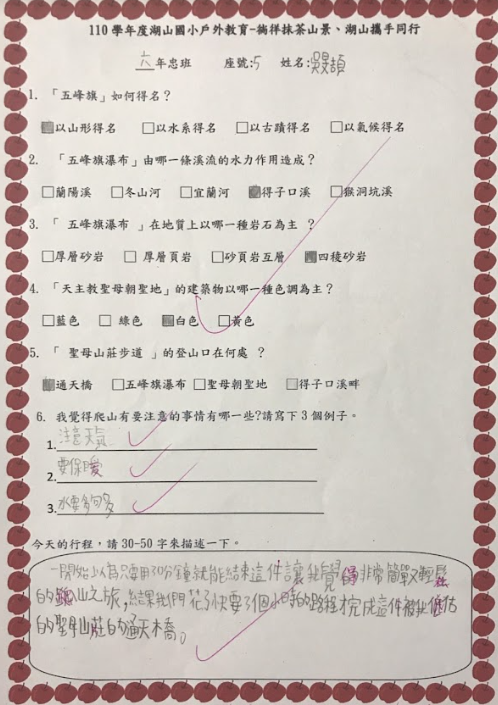 110 學年度湖山國小戶外教育-徜徉抹茶山景、湖山攜手同行
六年忠班 座號:5 姓名:
1. 「五峰旗」如何得名？
■以山形得名 □以水系得名 □以古蹟得名 □以氣候得名
2. 「五峰旗瀑布」由哪一條溪流的水力作用造成？
□蘭陽溪 □冬山河 □宜蘭河 ■得子口溪 □猴洞坑溪
3. 「 五峰旗瀑布 」在地質上以哪一種岩石為主 ？
□厚層砂岩 □ 厚層頁岩 □砂頁岩互層 ■四稜砂岩
4. 「天主教聖母朝聖地」的建築物以哪一種色調為主？
□藍色 □ 綠色 ■白色 □黃色
5. 「 聖母山莊步道 」的登山口在何處 ？
■通天橋 □五峰旗瀑布 □聖母朝聖地 □得子口溪畔
6. 我覺得爬山有要注意的事情有哪一些?請寫下 3 個例子。
1. 注意天氣
2. 要保暖
3. 水要多包多
今天的行程，請 30-50 字來描述一下。
一開始以為只要用30分鐘就能結束這件讓我覺得非常簡單又輕鬆
的爬山之旅,結果我們花了快要3個小時的路程才完成這件被我低估
的聖母山莊的通天橋。